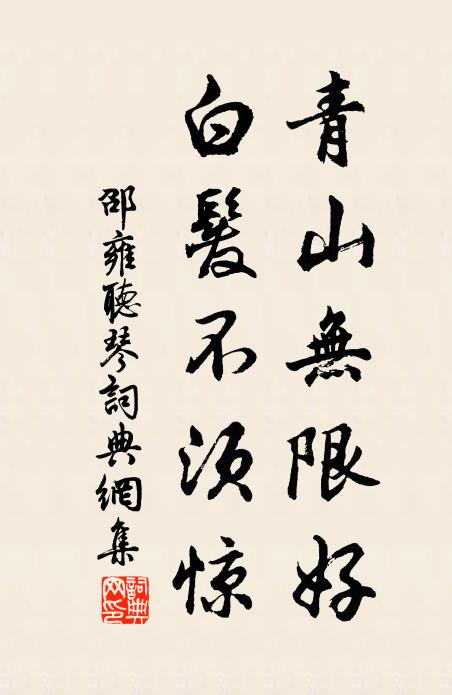 青山無限好
白髮不须惊
邵雍聽琴詞典網集
詞典網印